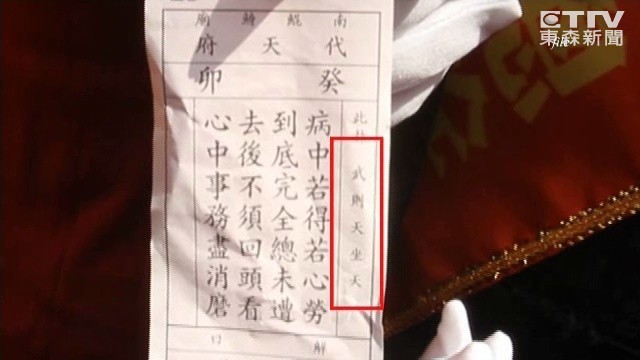 ETtV
東森新聞
南鯤鯓廟
代天府
癸卯
武則天坐天
病中若得苦心勞
到底完全總未遭
去後不須回頭看
心中事務盡消磨
解曰